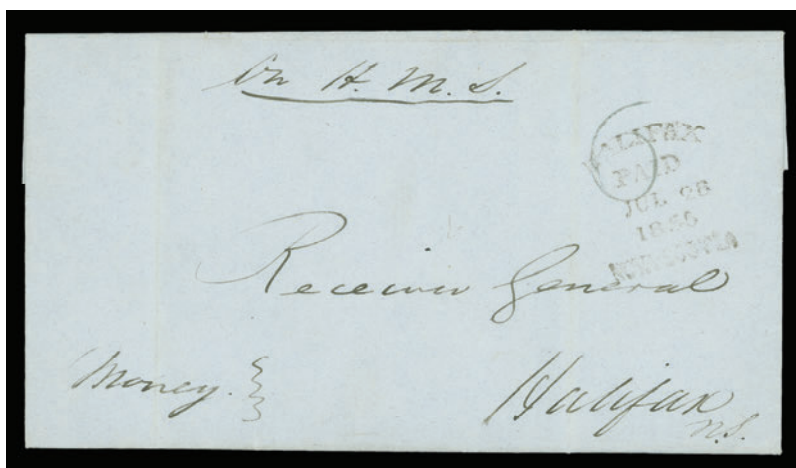 On H. M. S.
HALIFAX
PAID
JUL 28
1856
NOVA SCOTIA
Receiver General
Money.
Halifax
N.S.